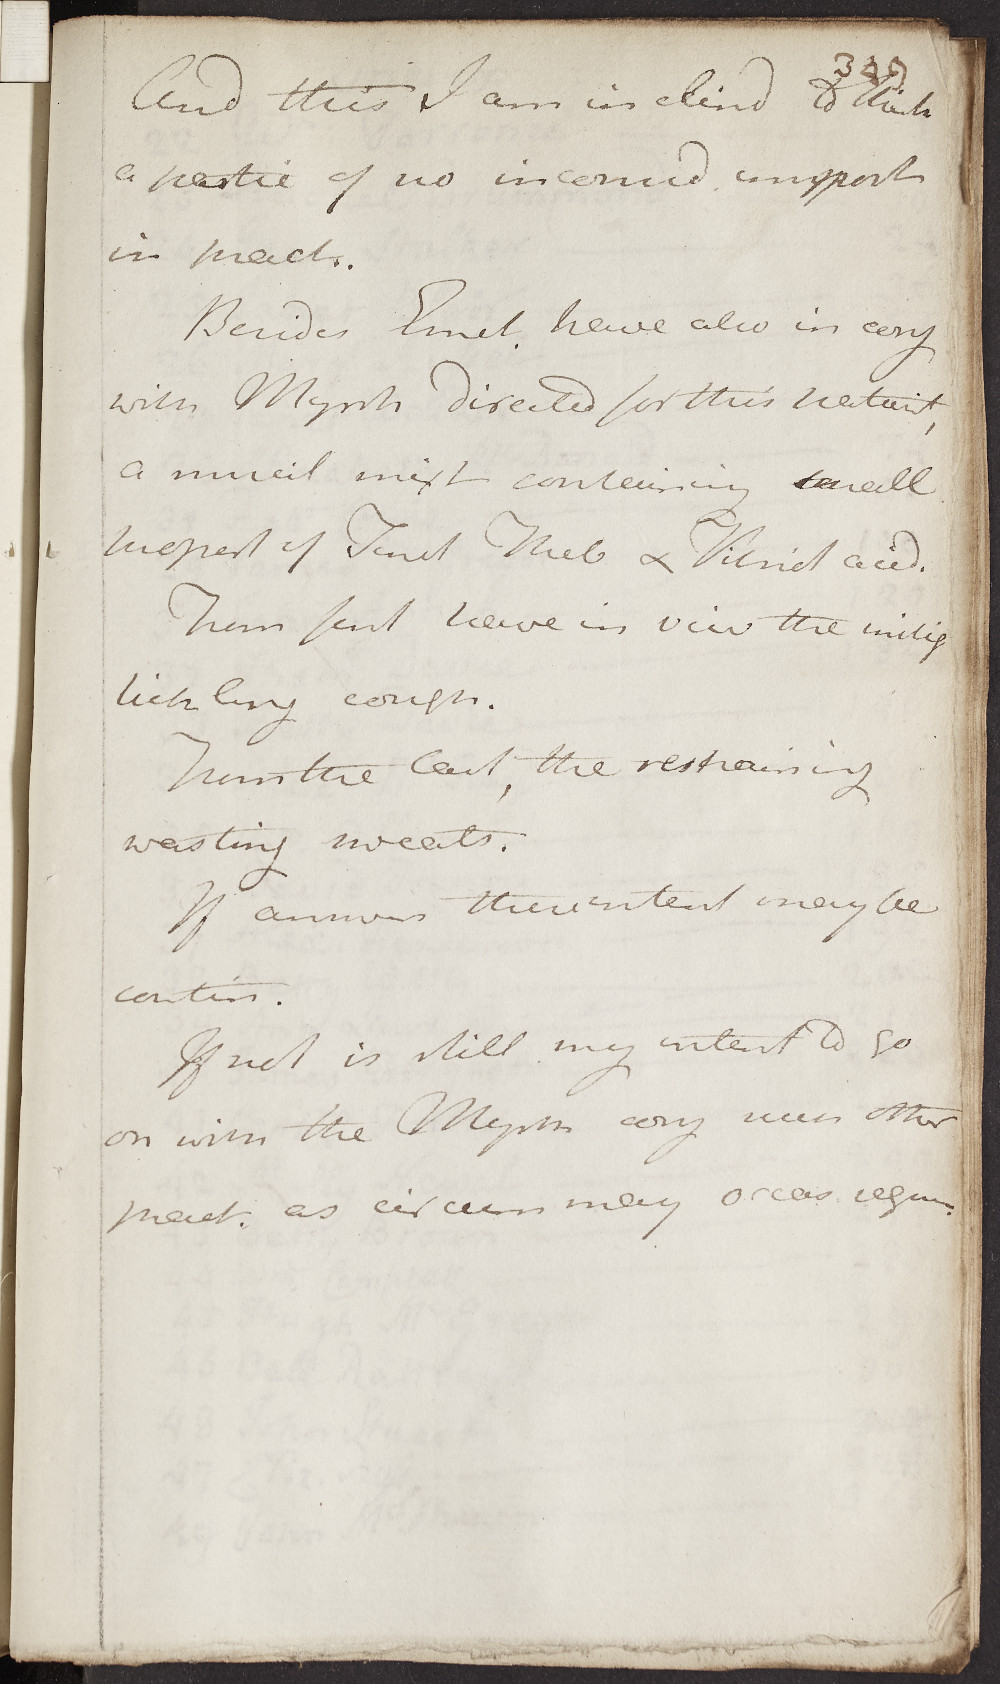 And this I am inclind to think
a partic of no inconsid import
in pract.
Besides Emet. have also in conj
with Myrrh directed for this patient,
a mucil mixt containing small
proport of Tinct Theb & Vitriol acid.
From first have in view the mitig
tickling cough.
From the last, the restraining
wasting sweats.
If answer these intent may be
contin.
If not is still my intent to go
on with the Myrrh conj with other
pract. as circum may occas requir.